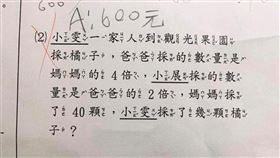 A:600元
(2)小雯一家人到觀光果園
採橘子,爸爸採的數量是
媽媽的4倍,小展採的數
量是爸爸的2倍,媽媽採
了40顆,小雯採了幾顆橘
子?